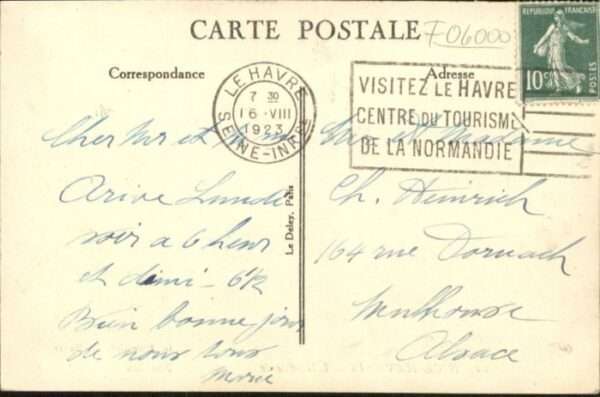 CARTE POSTALE
F06000
Correspondance
Adresse
REPUBLIQUE FRANÇAISE
10c
POSTES
LE HAVRE
7 30
16 -VIII
1923
SEINE-INFRE
VISITEZ LE HAVRE
CENTRE DU TOURISME
DE LA NORMANDIE
Cher Mr et Mme
Arive Lundi
soir a 6 heur
et demi - 6 1/2
Bien bonne jour
de nous tous
Marie
Le Deley, Paris
et Madame
Ch. Heinrich
164 rue Dornach
Mulhouse
Alsace